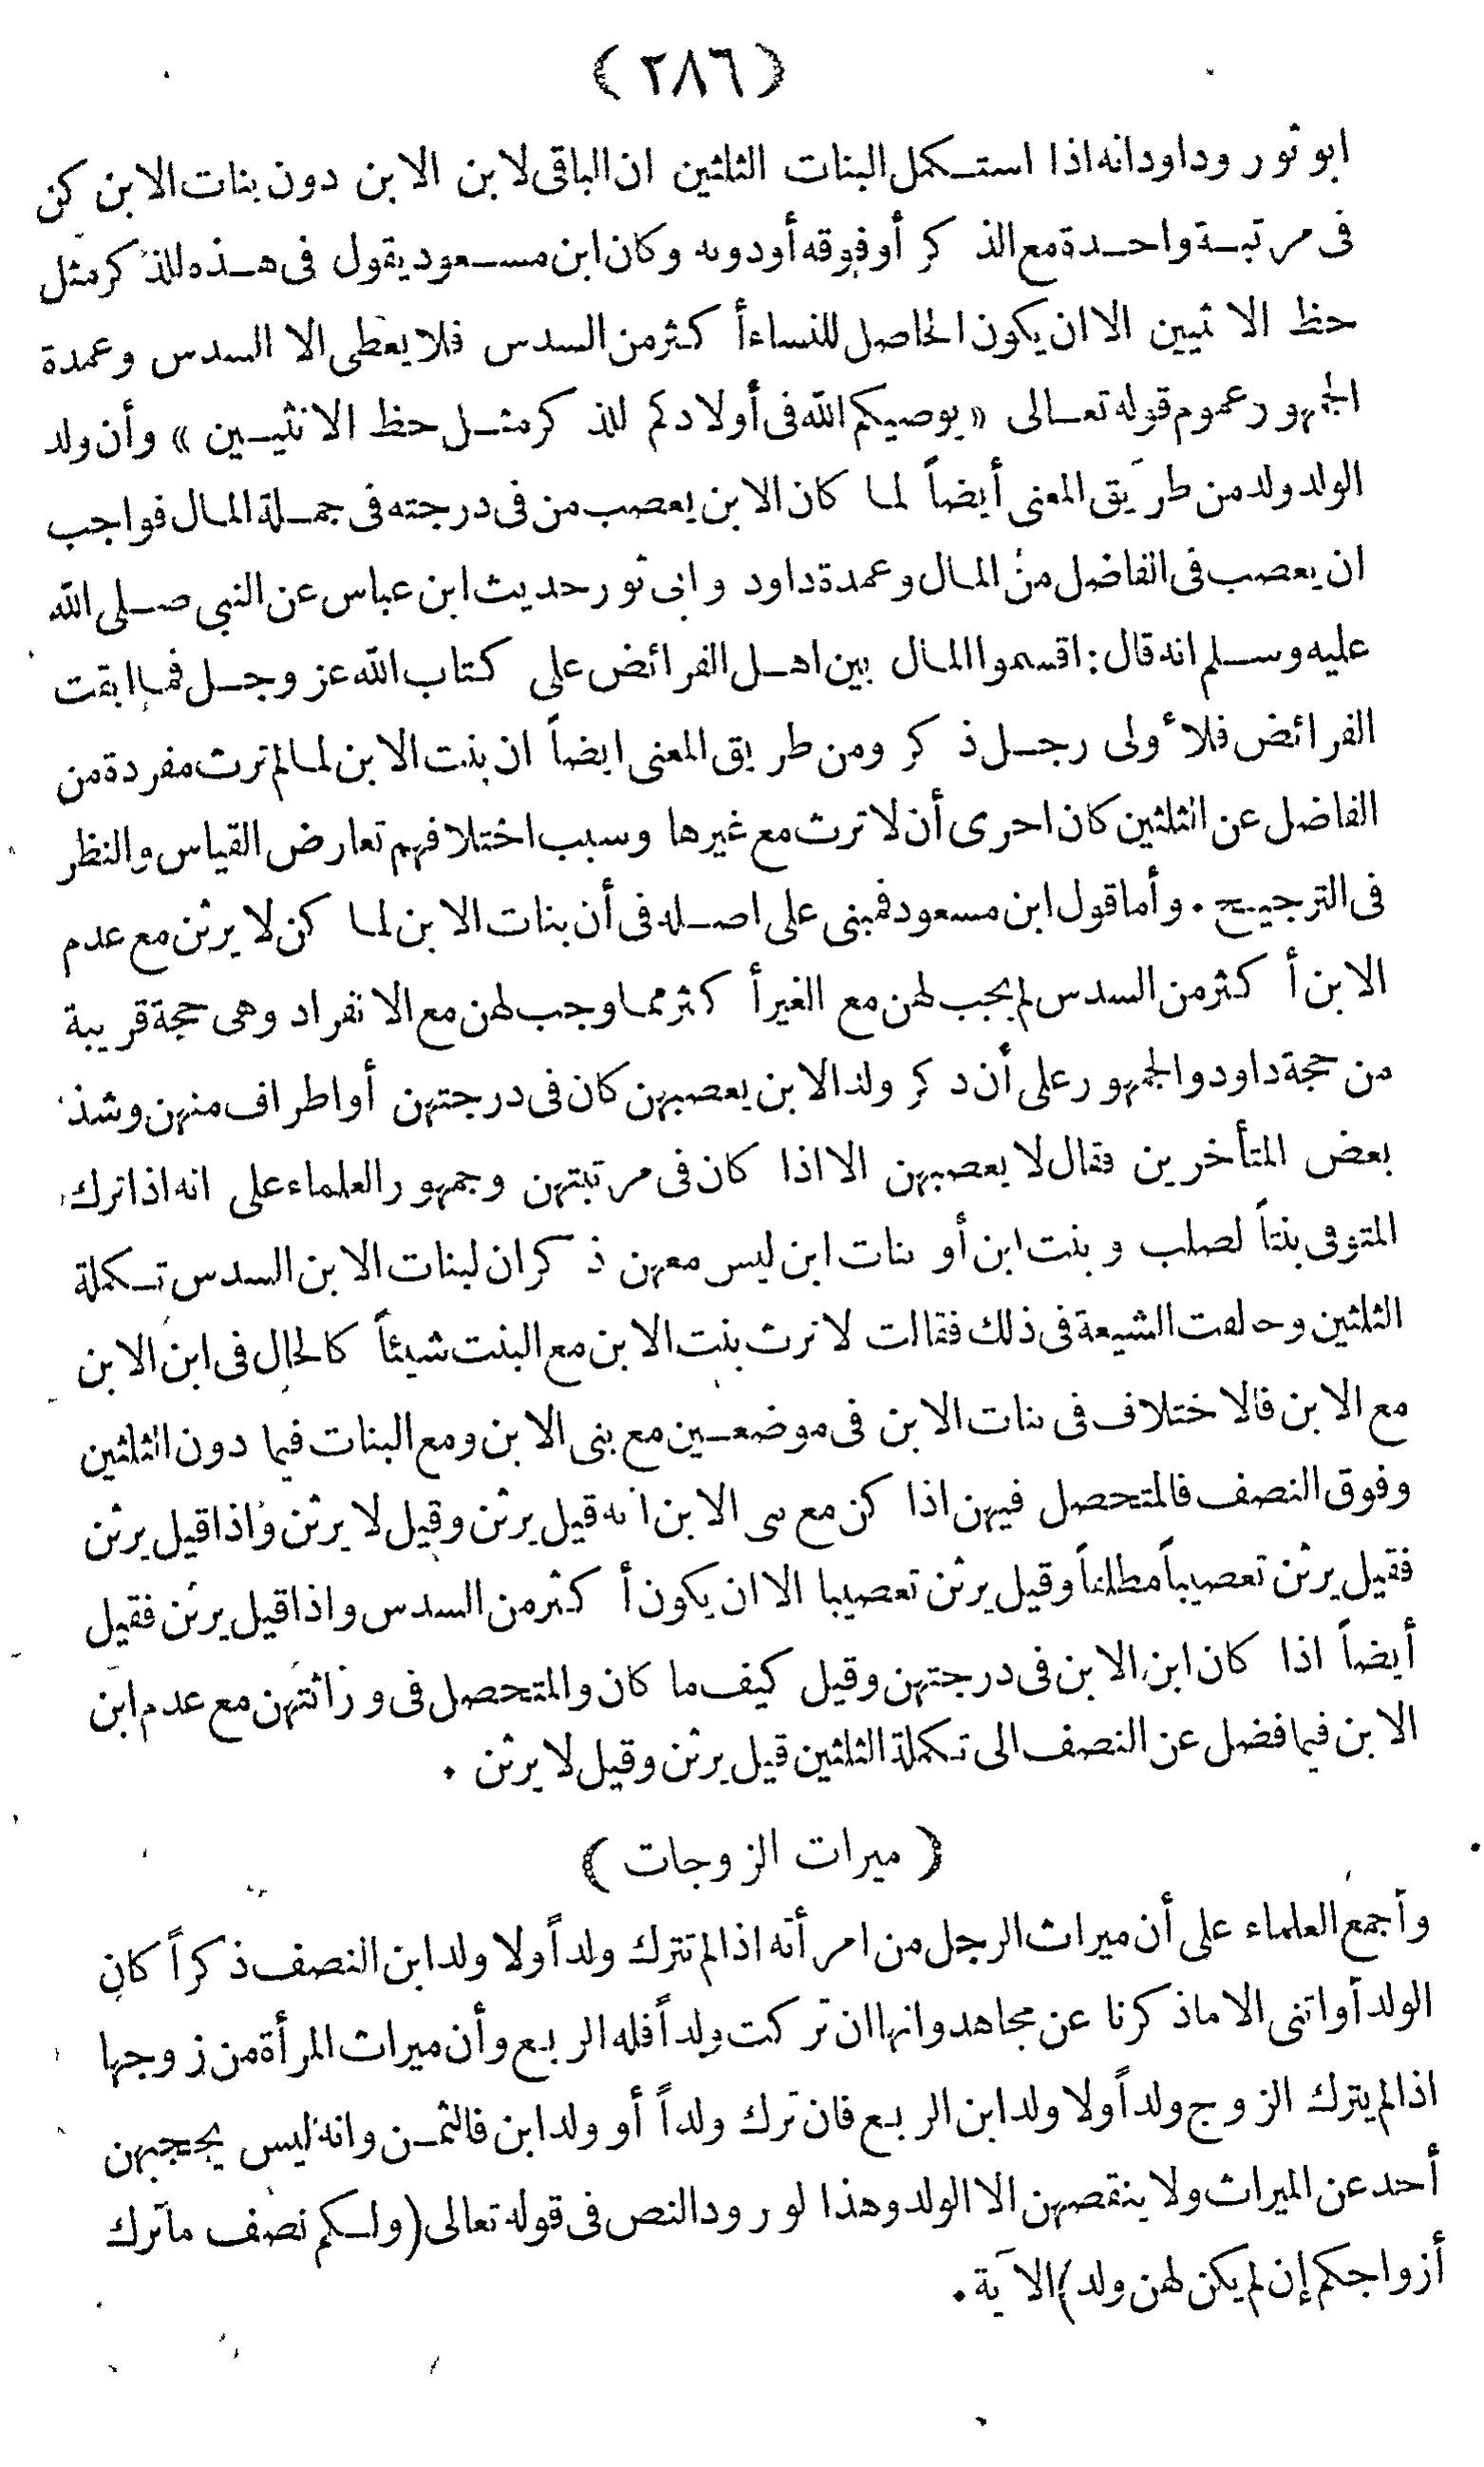 (٢٨٦)
ابو ثور وداود انه اذا استكمل البنات الثلثين ان الباقى لابن الابن دون بنات الابن كن
فى مرتبة واحدة مع الذكر أو فوقه أو دونه وكان ابن مسعود يقول فى هذه للذكر مثل
حظ الانثيين الا ان يكون الحاصل للنساء أكثر من السدس فلا يعطى الا السدس وعمدة
الجمهور عموم قوله تعالى «يوصيكم الله فى أولادكم للذكر مثل حظ الانثيين» وأن ولد
الولد ولد من طريق المعنى أيضاً لما كان الابن يعصب من فى درجته فى جملة المال فواجب
ان يعصب فى الفاضل من المال وعمدة داود وابى ثور حديث ابن عباس عن النبى صلى الله
عليه وسلم انه قال: اقسموا المال بين اهل الفرائض على كتاب الله عز وجل فما ابقت
الفرائض فلأولى رجل ذكر ومن طريق المعنى ايضاً ان بنت الابن لما لم ترث مفردة من
الفاضل عن الثلثين كان احرى أن لا ترث مع غيرها وسبب اختلافهم تعارض القياس والنظر
فى الترجيح. وأما قول ابن مسعود فمبنى على اصله فى أن بنات الابن لما كن لا يرثن مع عدم
الابن أكثر من السدس لم يجب لهن مع الغير أكثر مما وجب لهن مع الانفراد وهى حجة قريبة
من حجة داود والجمهور على أن ذكر ولد الابن يعصبهن كان فى درجتهن أو اطراف منهن وشذ
بعض المتأخرين فقال لا يعصبهن الا اذا كان فى مرتبتهن وجمهور العلماء على انه اذا ترك
المتوفى بنتاً لصلب وبنت ابن أو بنات ابن ليس معهن ذكر ان لبنات الابن السدس تكملة
الثلثين وخالفت الشيعة فى ذلك فقالت لا ترث بنت الابن مع البنت شيئاً كالحال فى ابن الابن
مع الابن فالاختلاف فى بنات الابن فى موضعين مع بنى الابن ومع البنات فيما دون الثلثين
وفوق النصف فالمتحصل فيهن اذا كن مع بنى الابن انه قيل يرثن وقيل لا يرثن واذا قيل يرثن
فقيل يرثن تعصيباً مطلقاً وقيل يرثن تعصيبا الا ان يكون أكثر من السدس واذا قيل يرثن فقيل
أيضاً اذا كان ابن الابن فى درجتهن وقيل كيف ما كان والمتحصل فى وراثتهن مع عدم ابن
الابن فيما فضل عن النصف الى تكملة الثلثين قيل يرثن وقيل لا يرثن.
(ميرات الزوجات)
وأجمع العلماء على أن ميراث الرجل من امرأته اذا لم تترك ولداً ولا ولد ابن النصف ذكراً كان
الولد أو انثى الا ما ذكرنا عن مجاهد وانها ان تركت ولداً فله الربع وأن ميراث المرأة من زوجها
اذا لم يترك الزوج ولداً ولا ولد ابن الربع فان ترك ولداً أو ولد ابن فالثمن وانه ليس يحجبهن
أحد عن الميراث ولا ينقصهن الا الولد وهذا لورود النص فى قوله تعالى (ولكم نصف ما ترك
أزواجكم إن لم يكن لهن ولد) الآية.